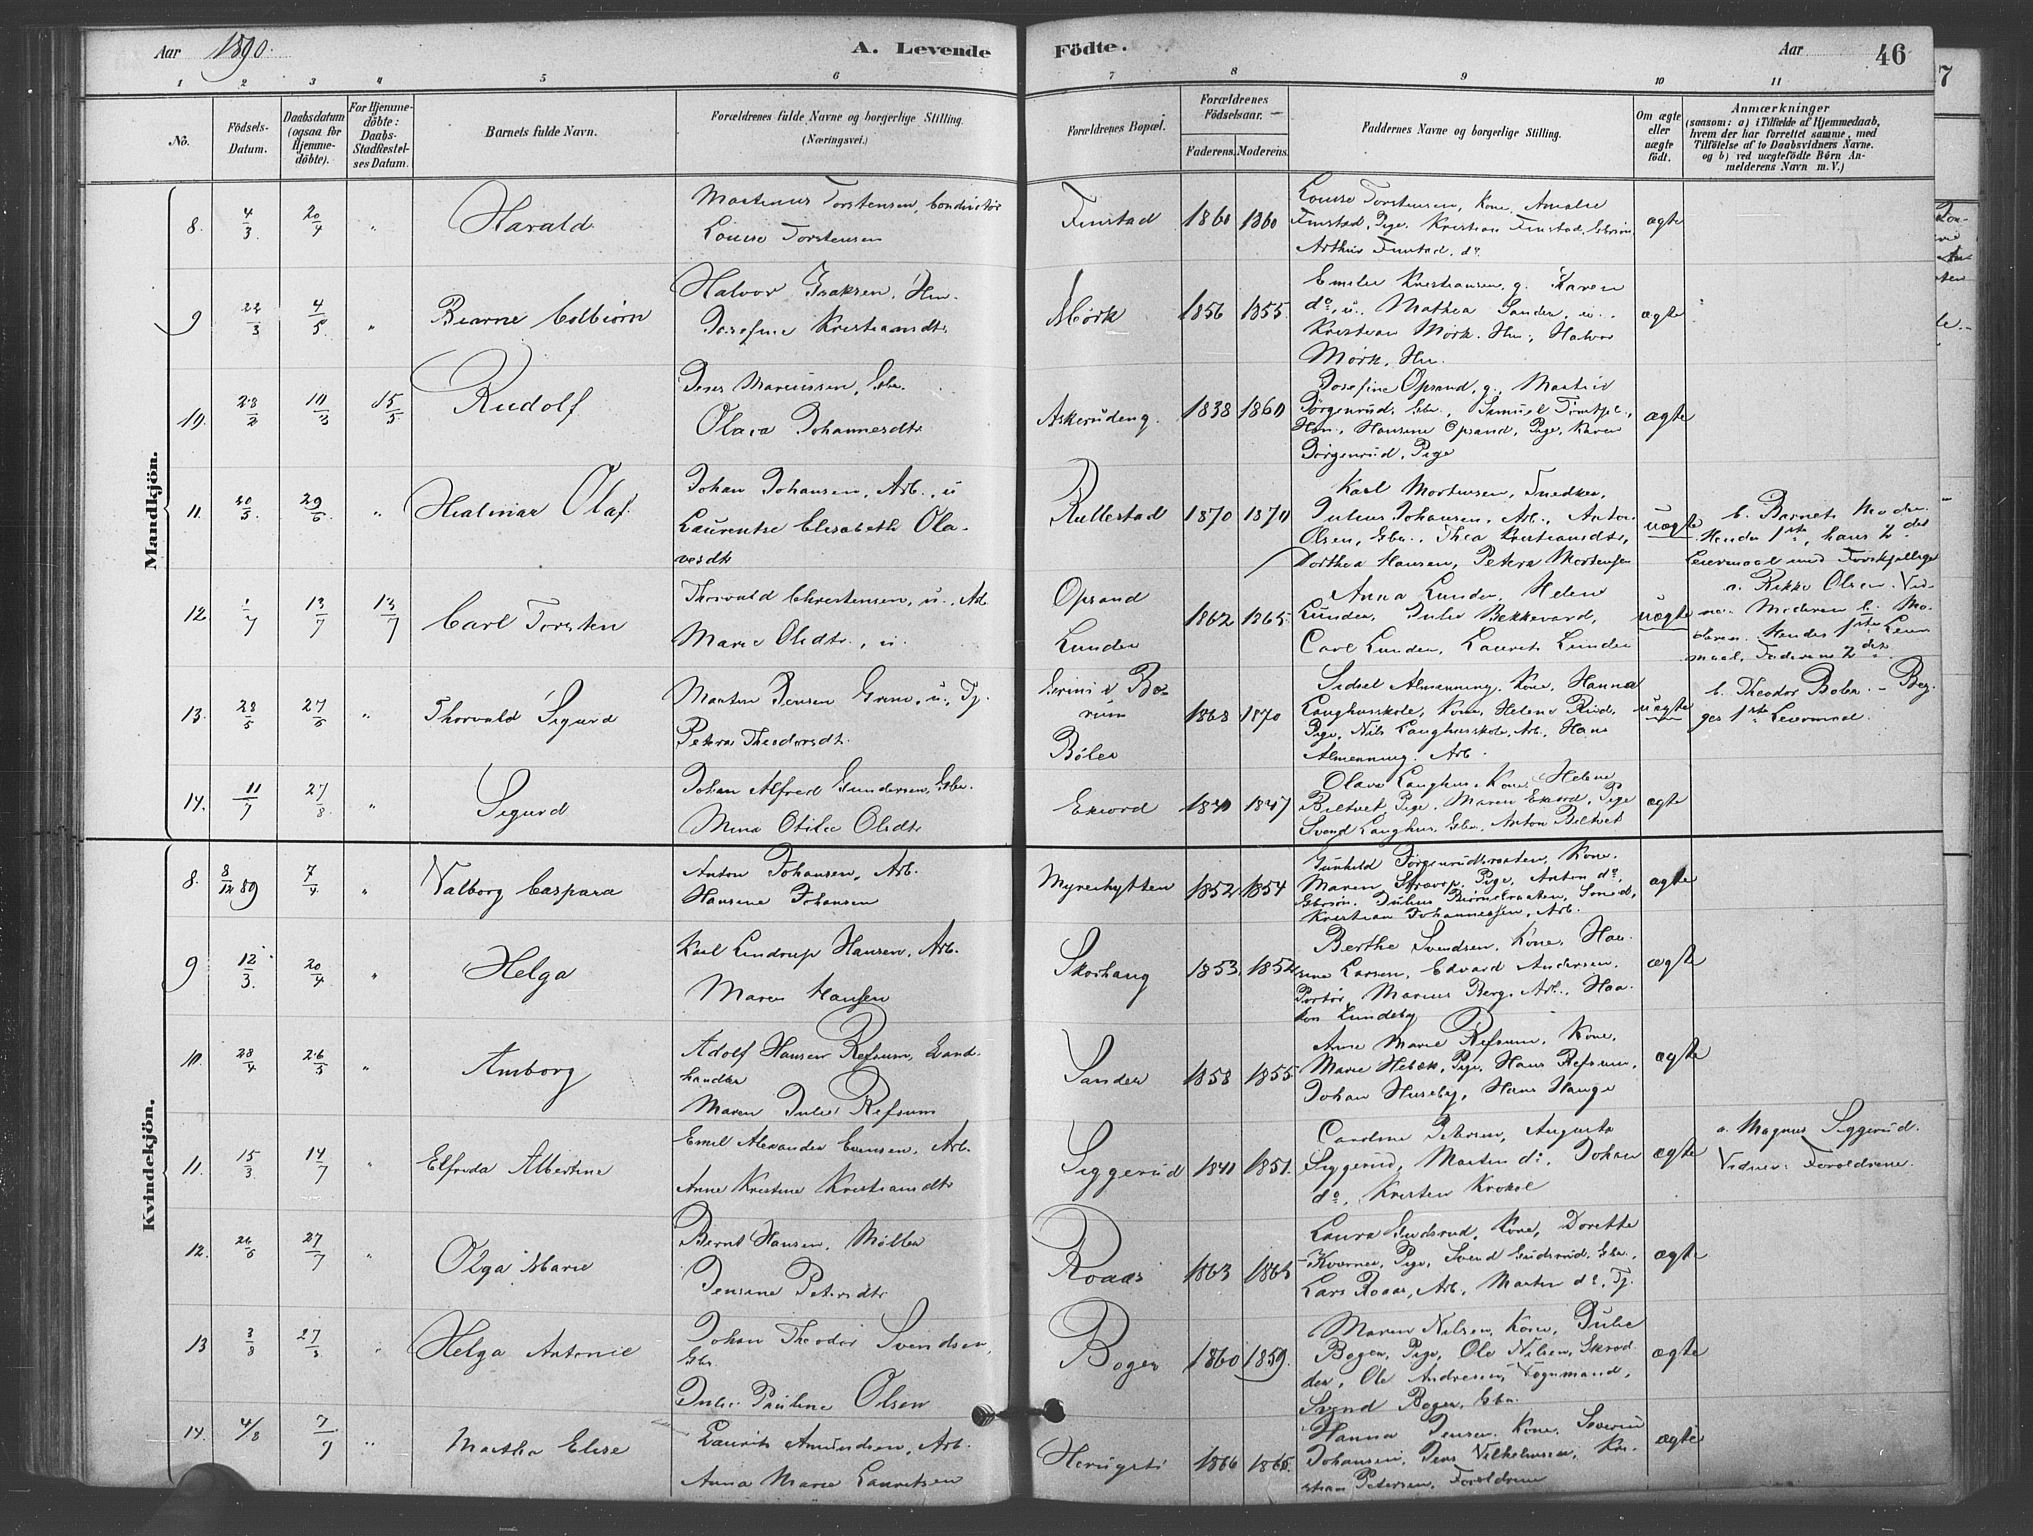 Aar 1890.
A. Levende Födte.
Aar 46
1 2 3 4 5 6 7 8 9 10 11
No.
Födsels-Datum.
Daabsdatum (ogsaa for Hjemme-döbte).
For Hjemme-döbte: Daabs-Stadfæstel-ses Datum.
Barnets fulde Navn.
Forældrenes fulde Navne og borgerlige Stilling.
(Næringsvei.)
Forældrenes Bopæl.
Forældrenes Födselsaar.
Faderens. Moderens.
Faddernes Navne og borgerlige Stilling.
Om ægte eller uægte födt.
Anmærkninger
(saasom: a) i Tilfælde af Hjemmedaab,
hvem der har forrettet samme, med
Tilföielse af to Daabsvidners Navne.
og b) ved uægtefödte Börn An-
melderens Navn m. V.)
Mandkjön.
8. 4/3 20/4 " Harald
Martinus Torstensen, Conductör
Louise Torstensen
Finstad 1860 1860
Louise Torstensen, Kone, Amalie
Finstad, Pige, Kristian Finstad, Gbrsön,
Arthur Finstad, do.
ægte
9 22/3 4/5 " Bjarne Colbiörn
Halvor Isaksen, Hm.
Josefine Kristiansdtr.
Mörk 1856 1855.
Emilie Kristiansen, g. Karen
do, u. Mathea Sander, u.
Kristian Mörk, Hm., Halvor
Mörk, Hm.
ægte
10. 28/2 10/3 15/5 Rudolf
Jens Mariussen, Gbr.
Olava Johannesdtr
Askerudeng. 1838 1860
Josefine Opsand, g., Martin
Jörgenrud, Gbr., Samuel
Hm., Hansine Opsand, Pige, Karen
Jörgenrud, Pige
ægte
11. 20/5. 29/6. " Hialmar Olaf.
Johan Johansen, Arb., u
Laurentse Elisabeth Ola-
vesdtr
Rullestad 1870 1870
Karl Mortensen, Snedker,
Julius Johansen, Arb., Anton
Olsen, Gbr., Thea Kristiansdtr,
Dorthea Hansen, Petra Mortensen
uægte
b. Barnets Moder.
Hendes 1ste, hans 2det
Leiermaal med Forskjellige
12. 1/7 13/7 13/7 Carl Torsten
Thorvald Christensen, u., Ab.
Marie Olsdtr., u.
Opsand
Lunder
1862 1865.
Anna Lunder, Helene
Lunder, Julie Bekkevard,
Carl Lunder, Laurits Lunder
uægte
a. Rikke Olsen. Vid-
ne: Moderen b. Mo-
deren. Hendes 1ste Leier
maal, Faderens 2det
13. 28/5 27/6 " Thorvald Sigurd
Martin Jensen Grini, u., Tj.
Petra Theodorsdtr.
Grini i Bæ-
rum
Böler
1868 1870
Sidsel Almenning, Kone, Hanna
Langhusskole, Kone, Helene Rud,
Pige, Nils Langhusskole, Arb., Hans
Almenning, Arb.
uægte
b. Theodor Böler. - Beg-
ges 1ste Leiermaal.
14. 11/7 27/8 " Sigurd
Johan Alfred Gundersen, Gbr.
Mina Otilie Olsdtr
Ekiord 1840 1847
Olava Langhus, Kone, Helene
Biltvet, Pige, Maren Ekiord, Pige
Svend Langhus, Gbr., Anton Biltvet
ægte
Kvindekjön.
8. 8/12 89 7/4 " Valborg Caspara
Anton Johansen, Arb.
Hansine Johansen
Myrerhytten 1852 1854
Gunhild Jörgenrudbraaten, Kone.
Maren Pige, Anton do,
Gbrsön, Julius Smed,
Kristian Johannessen, Arb.
ægte
9 12/3. 20/4 " Helga
Karl Lindrup Hansen, Arb.
Maren Hansen
Skorhaug 1853. 1852
Berthe Svendsen, Kone, Han-
sine Larsen, Edvard Andersen,
Portör, Marius Berg, Arb., Haa-
kon Lundeby
ægte
10. 28/4 26/5 " Amborg
Adolf Hansen Refsum, Land-
handler
Maren Julie Refsum
Sander 1858 1855
Anne Marie Refsum, Kone,
Marie Hebæk, Pige, Hans Refsum,
Johan Huseby, Hans Hauge
ægte
11. 15/3. 14/7 " Elfrida Albertine
Emil Alexander Evensen, Arb.
Anne Kristine Kristiansdtr
Siggerud 1841 1851.
Caroline Petersen, Augusta
Siggerud, Martin do, Johan
do, Kristen Krokol
ægte
a. Magnus Siggerud.
Vidner: Forældrene.
12. 26/5 27/7 " Olga Marie
Bernt Hansen, Möller
Jensine Petersdtr
Roaas 1863 1865
Laura Gudsrud, Kone, Dorette
Kværner, Pige, Svend Gudsrud, Gbr.,
Lars Roaas, Arb., Martin do, Tj.
ægte
13 3/8 27/3 " Helga Antonie
Johan Theodor Svendsen,
Gbr.
Julie Pauline Olsen
Boger 1860 1859.
Maren Nilsen, Kone, Julie
Boger, Pige, Ole Nilsen, Skræd-
der, Ole Andresen, Vognmand,
Svend Boger, Gbr.
ægte
14. 4/8 7/9 " Martha Elise
Laurits Amundsen, Arb.
Anna Marie Lauritsen
1866 1865.
Hanna Jensen, Kone, Severin
Johansen, Jens Vilhelmsen, Kri-
stian Petersen, Forældrene
ægte